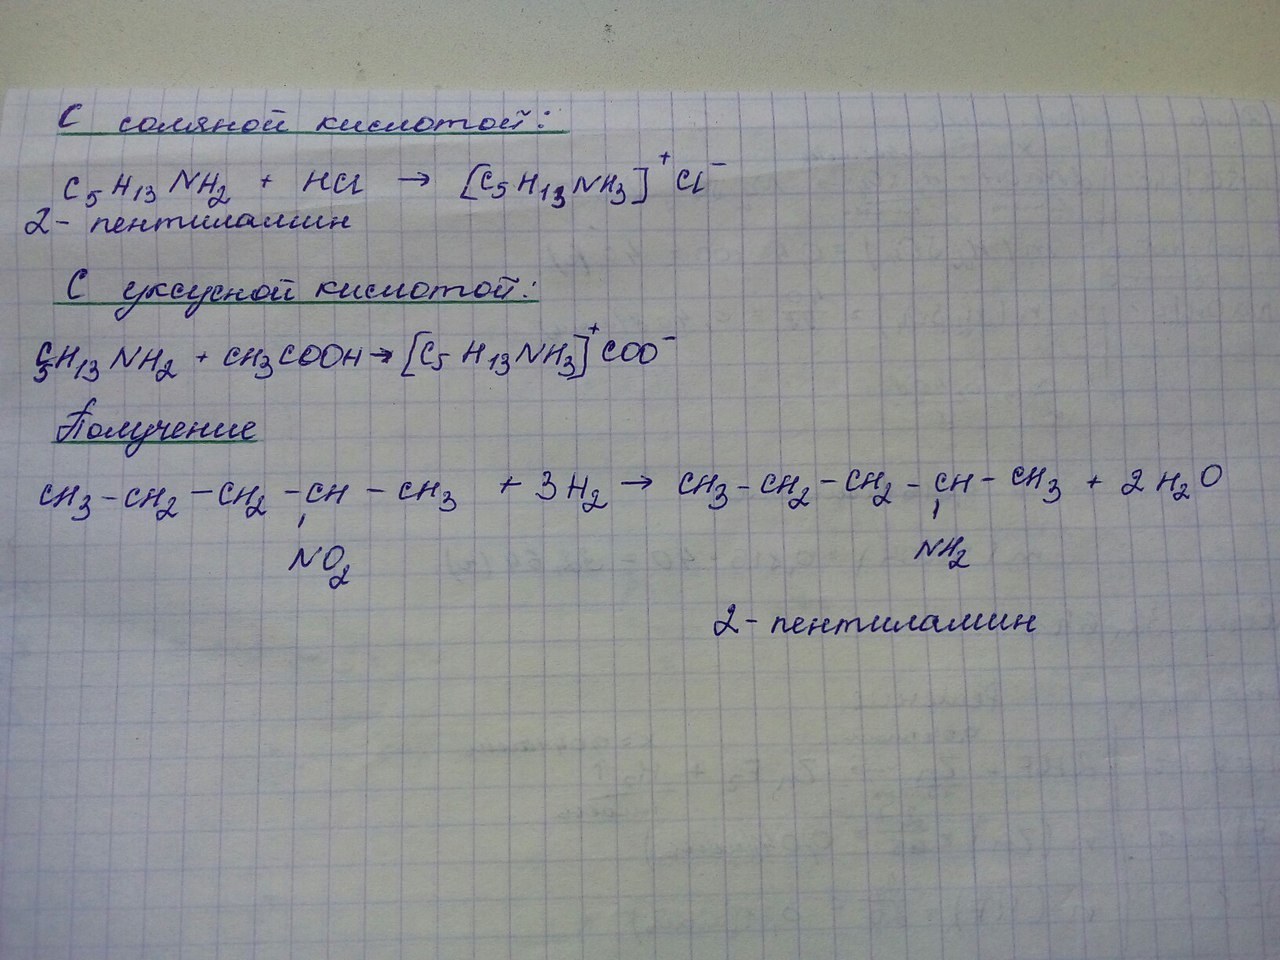 С соляной кислотой:
C₅H₁₃NH₂ + HCl → [C₅H₁₃NH₃]⁺Cl⁻
2-пентиламин
С уксусной кислотой:
C₅H₁₃NH₂ + CH₃COOH → [C₅H₁₃NH₃]⁺COO⁻
Получение
CH₃-CH₂-CH₂-CH-CH₃ + 3H₂ → CH₃-CH₂-CH₂-CH-CH₃ + 2H₂O
NO₂ NH₂
2-пентиламин